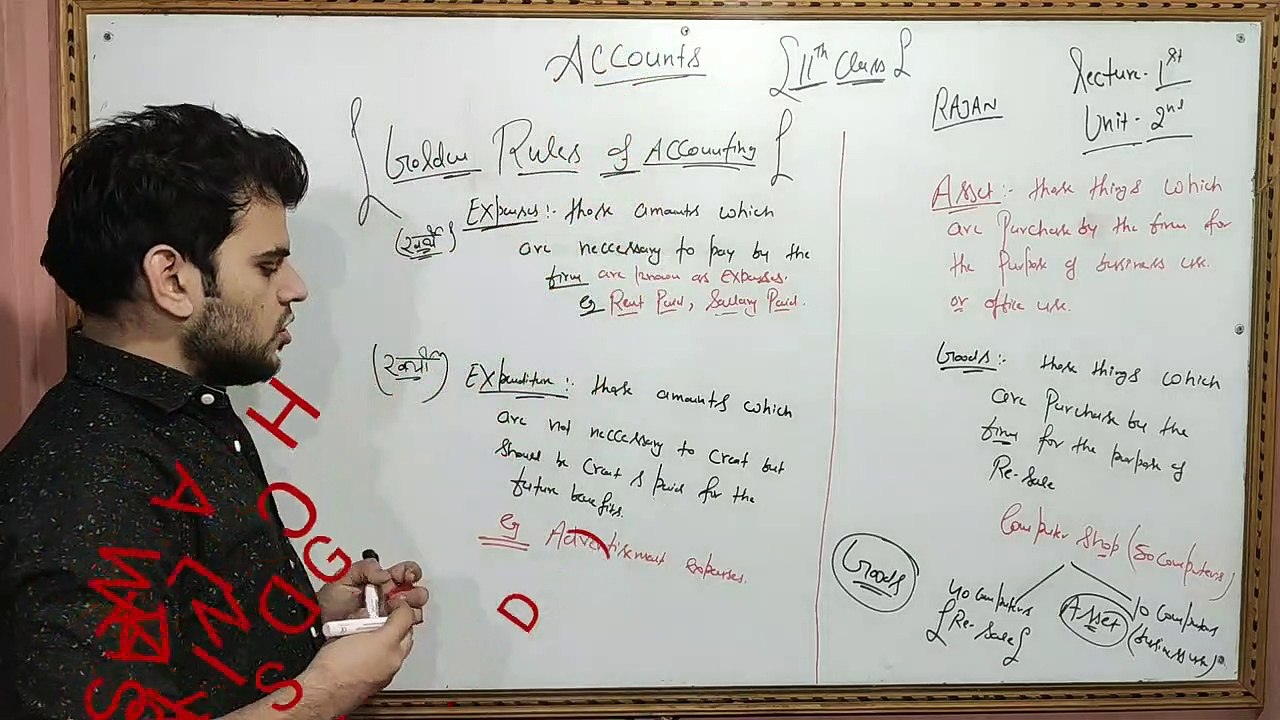 Accounts
11th Class
Lecture - 1st
Unit - 2nd
RAJAN
Golden Rules of Accounting
Expenses :- those amounts which
are neccessary to pay by the
firm are known as Expenses.
eg Rent Paid, Sallary Paid.
Expenditure :- those amounts which
are not neccessary to Creat but
should be Creat & paid for the
future benefits.
eg Advertisement Expenses.
Asset :- those things which
are Purchase by the firm for
the Purpose of business use.
or office use.
Goods :- those things which
are Purchase by the
firm for the purpose of
Re-Sale
Computer Shop (50 Computers)
Goods
40 Computers
Re-Sale
Asset
10 Computers
(business use)